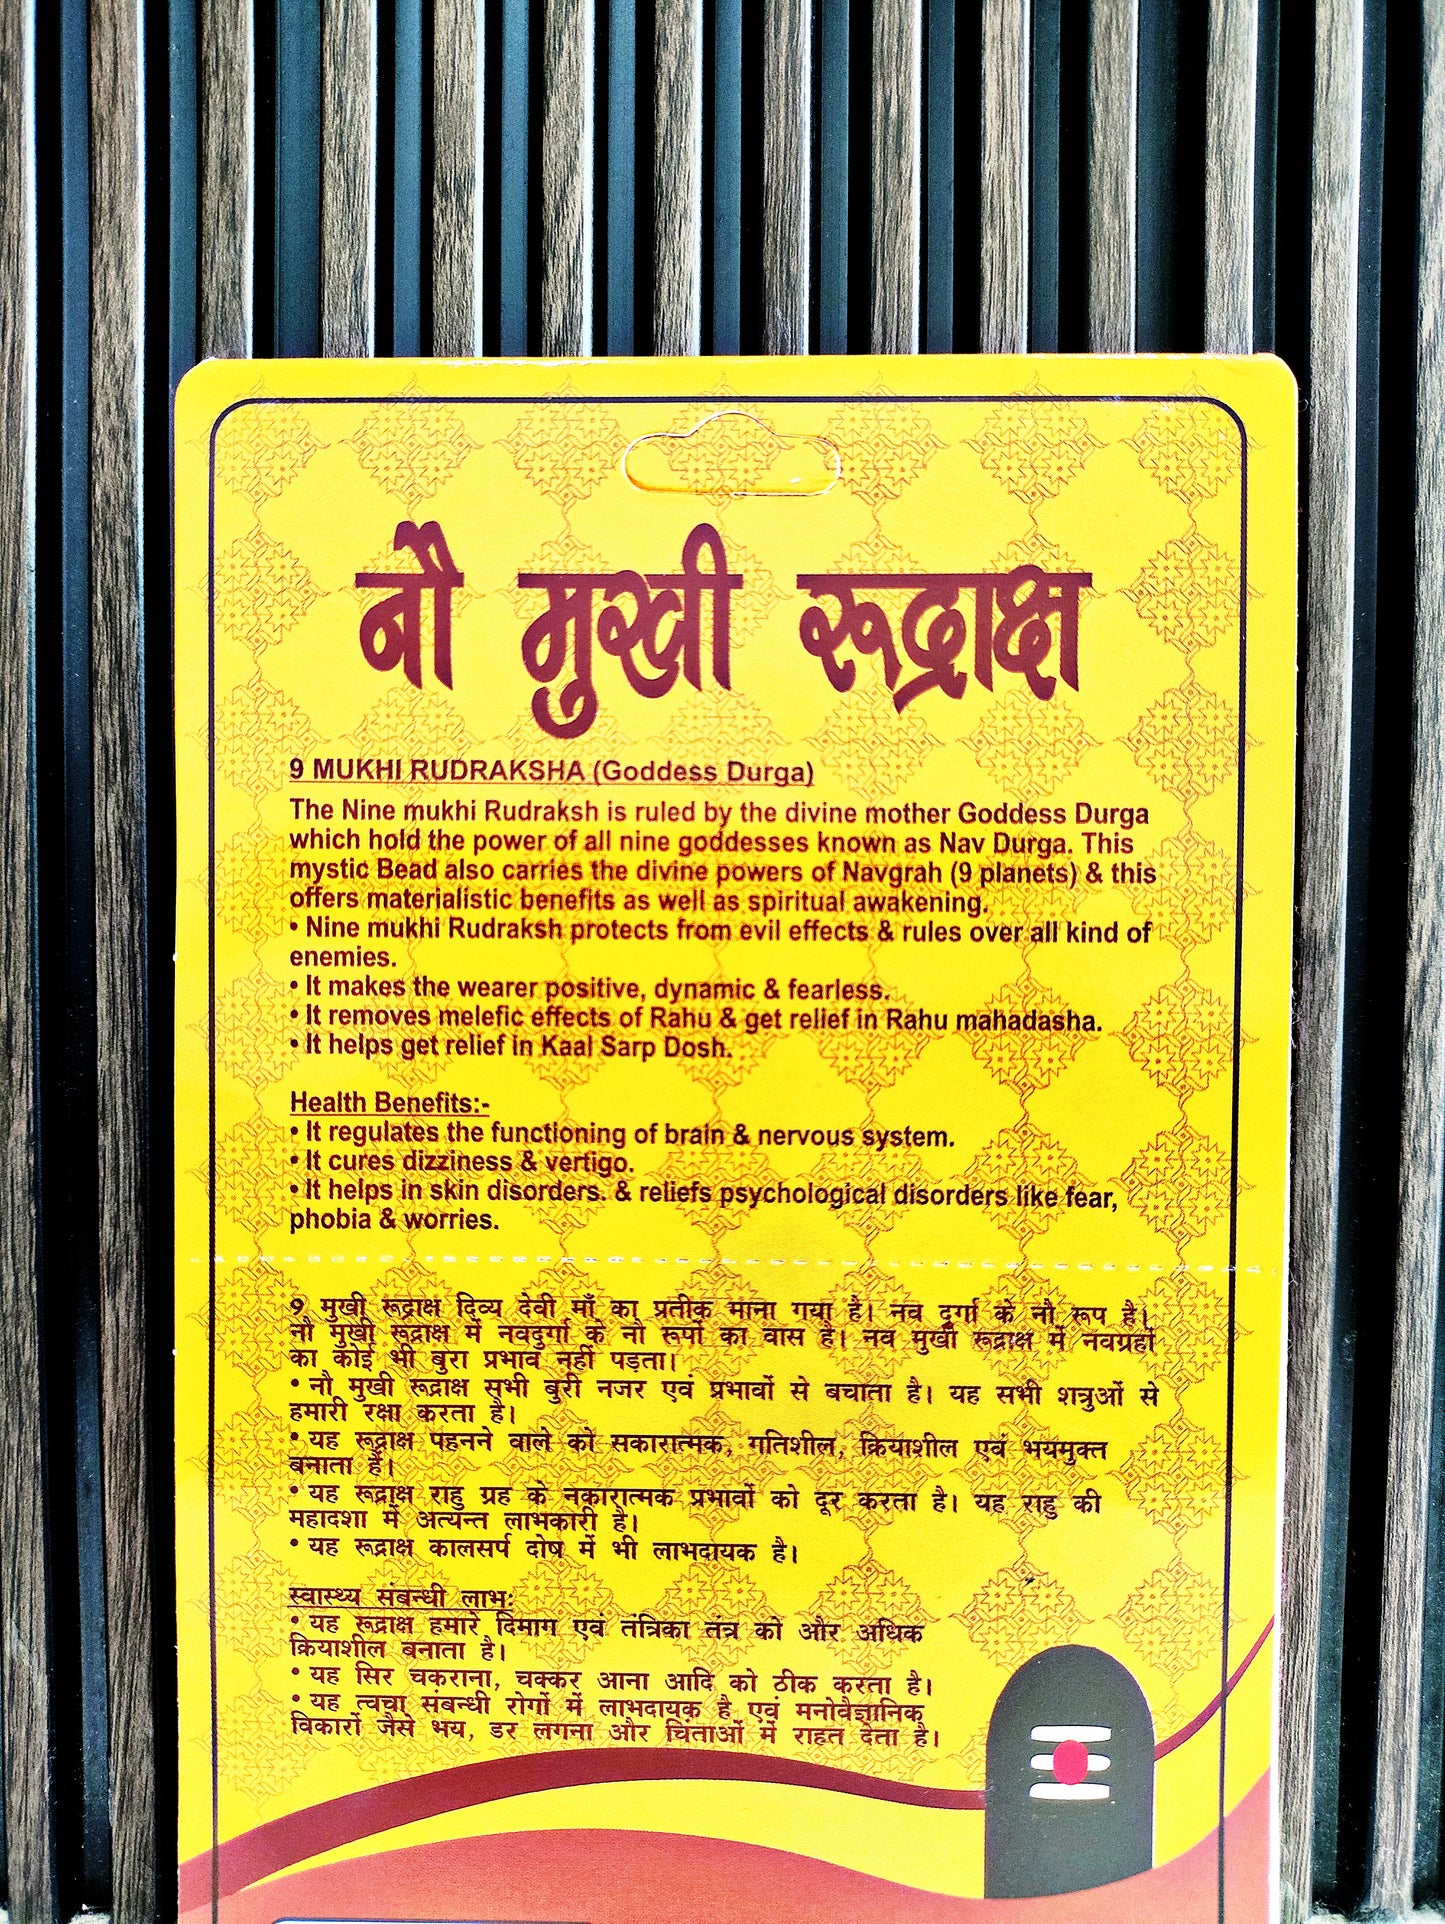 नौ मुखी रूद्राक्ष
9 MUKHI RUDRAKSHA (Goddess Durga)
The Nine mukhi Rudraksh is ruled by the divine mother Goddess Durga
which hold the power of all nine goddesses known as Nav Durga. This
mystic Bead also carries the divine powers of Navgrah (9 planets) & this
offers materialistic benefits as well as spiritual awakening.
• Nine mukhi Rudraksh protects from evil effects & rules over all kind of
enemies.
• It makes the wearer positive, dynamic & fearless.
• It removes melefic effects of Rahu & get relief in Rahu mahadasha.
• It helps get relief in Kaal Sarp Dosh.
Health Benefits:-
• It regulates the functioning of brain & nervous system.
• It cures dizziness & vertigo.
• It helps in skin disorders. & reliefs psychological disorders like fear,
phobia & worries.
9 मुखी रूद्राक्ष दिव्य देवी माँ का प्रतीक माना गया है। नव दुर्गा के नौ रूप है।
नौ मुखी रूद्राक्ष में नवदुर्गा के नौ रूपों का वास है। नव मुखी रूद्राक्ष में नवग्रहों
का कोई भी बुरा प्रभाव नहीं पड़ता।
• नौ मुखी रूद्राक्ष सभी बुरी नजर एवं प्रभावों से बचाता है। यह सभी शत्रुओं से
हमारी रक्षा करता है।
• यह रूद्राक्ष पहनने वाले को सकारात्मक, गतिशील, क्रियाशील एवं भयमुक्त
बनाता है।
• यह रूद्राक्ष राहु ग्रह के नकारात्मक प्रभावों को दूर करता है। यह राहु की
महादशा में अत्यन्त लाभकारी है।
• यह रूद्राक्ष कालसर्प दोष में भी लाभदायक है।
स्वास्थ्य संबन्धी लाभ:
• यह रूद्राक्ष हमारे दिमाग एवं तंत्रिका तंत्र को और अधिक
क्रियाशील बनाता है।
• यह सिर चकराना, चक्कर आना आदि को ठीक करता है।
• यह त्वचा संबन्धी रोगों में लाभदायक है एवं मनोवैज्ञानिक
विकारों जैसे भय, डर लगना और चिंताओं में राहत देता है।